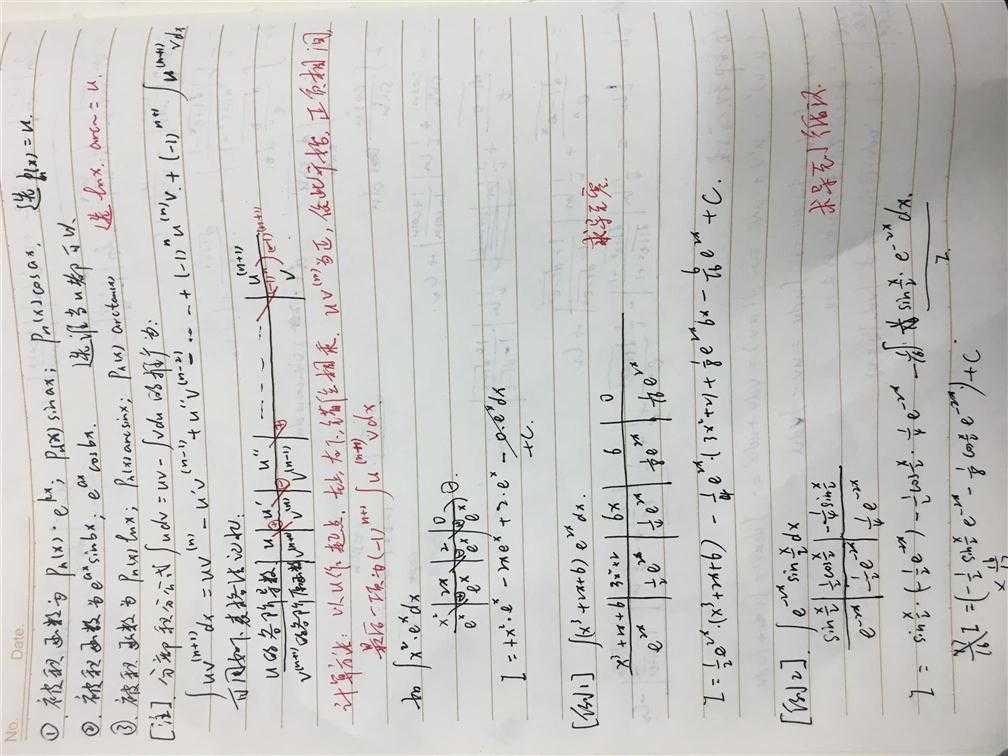 No.
Date.
① 被积函数为 Pn(x)·e^{kx}; Pn(x)sinax; Pn(x)cosax, 选Pn(x)=u.
② 被积函数为e^{ax}sinbx; e^{ax}cosbx. 选谁当u都可以.
③ 被积函数为 Pn(x)lnx; Pn(x)arcsinx; Pn(x)arctanx, 选lnx. arc~=u.
[注] 分部积分公式∫udv=uv-∫vdu的推广为:
∫uv^{(n+1)}dx=uv^{(n)}-u'v^{(n-1)}+u''v^{(n-2)}-…+(-1)^n u^{(n)}v+(-1)^{n+1}∫u^{(n+1)}vdx
可用如下表格法记忆:
u的各阶导数 u u' u'' … u^{(n+1)}
v^{(n+1)}的各阶原函数 v^{(n+1)} v^{(n)} v^{(n-1)} … v
⊕ ⊖ ⊕ (-1)^n (-1)^{(n+1)}
计算方法: 以u作起点, 左上右下错位相乘, uv^{(n)}为正, 依此采择, 正负相间
最后一项为(-1)^{n+1}∫u^{(n+1)}vdx
如∫x²·e^x dx
x² 2x 2 0
e^x e^x e^x e^x
I=+x²·e^x-2xe^x+2·e^x-∫0·e^x dx
+C.
[例1] ∫(x³+2x+6)e^{2x}dx.
x³+2x+6 3x²+2 6x 6 0 求导至零
e^{2x} ½e^{2x} ¼e^{2x} ⅛e^{2x} 1/16 e^{2x}
I=½e^{2x}(x³+2x+6)-¼e^{2x}·(3x²+2)+⅛e^{2x}6x-6/16 e^{2x}+C.
[例2] ∫e^{-2x}sin x/2 dx
sin x/2 ½cos x/2 -¼sin x/2 求导至了循环.
e^{-2x} -½e^{-2x} ¼e^{-2x}
I=sin x/2·(-½e^{-2x})-½cos x/2·¼e^{-2x}-1/16∫sin x/2·e^{-2x}dx.
I
17/16 I=(-½sin x/2 e^{-2x}-⅛cos x/2 e^{-2x})+C